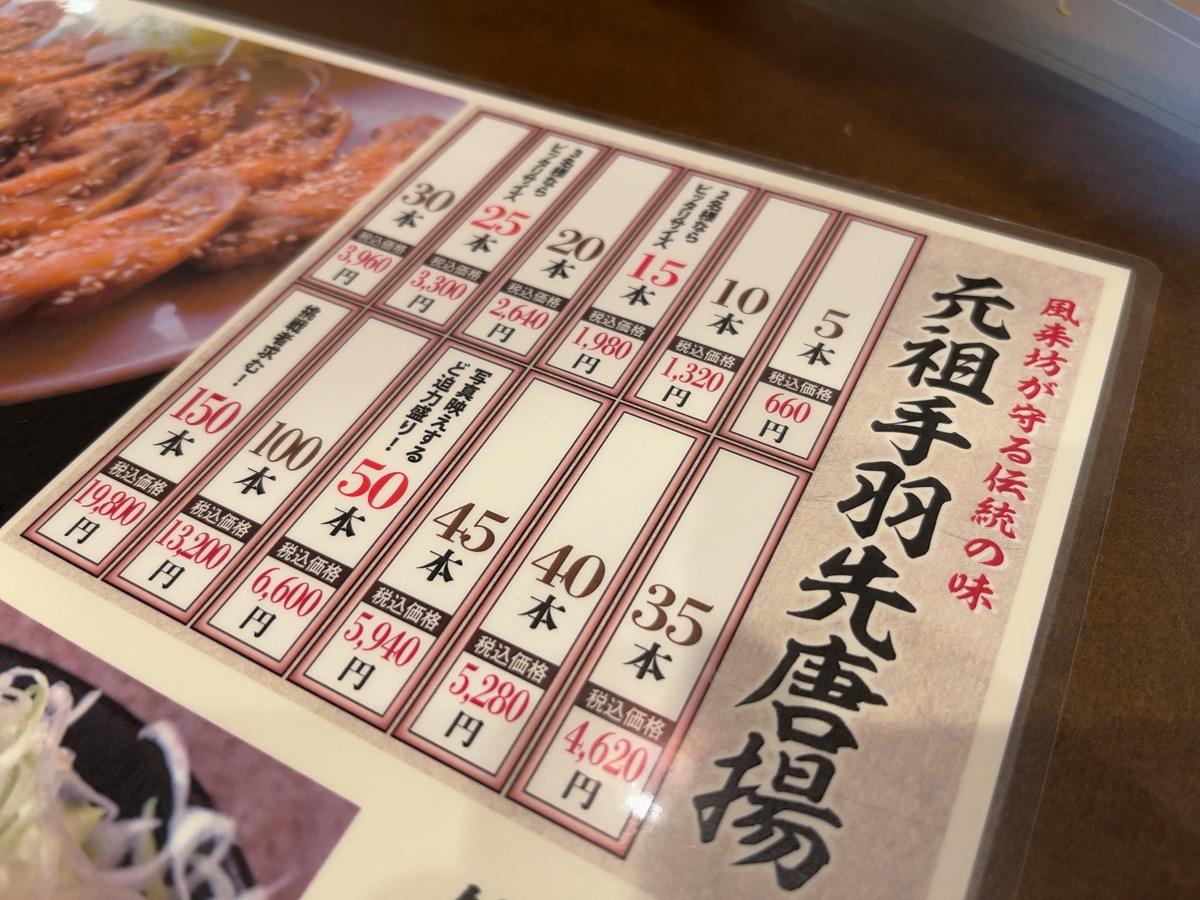 風来坊が守る伝統の味
元祖手羽先唐揚
5本
税込価格
660円
10本
税込価格
1,320円
2名様なら
ピッタリサイズ
15本
税込価格
1,980円
20本
税込価格
2,640円
3名様なら
ピッタリサイズ
25本
税込価格
3,300円
30本
税込価格
3,960円
35本
税込価格
4,620円
40本
税込価格
5,280円
45本
税込価格
5,940円
写真映えする
ど迫力盛り！
50本
税込価格
6,600円
100本
税込価格
13,200円
挑戦者求む！
150本
税込価格
19,800円